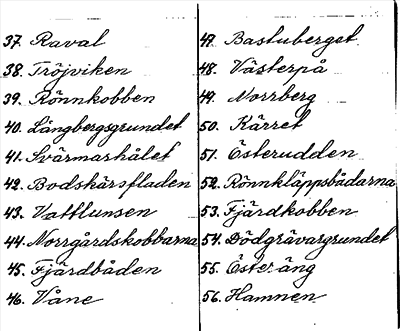 37. Raval
38. Tröjviken
39. Rönnkobben
40. Långbergsgrundet
41. Svärmarhålet
42. Bodskärsfladen
43. Vattlunsen
44. Norrgårdskobbarna
45. Fjärdbåden
46. Våne
47. Bastuberget
48. Västerpå
49. Norrberg
50. Kärret
51. Österudden
52. Rönnkläppsbådarna
53. Fjärdkobben
54. Dödgrävargrundet
55. Österäng
56. Hamnen